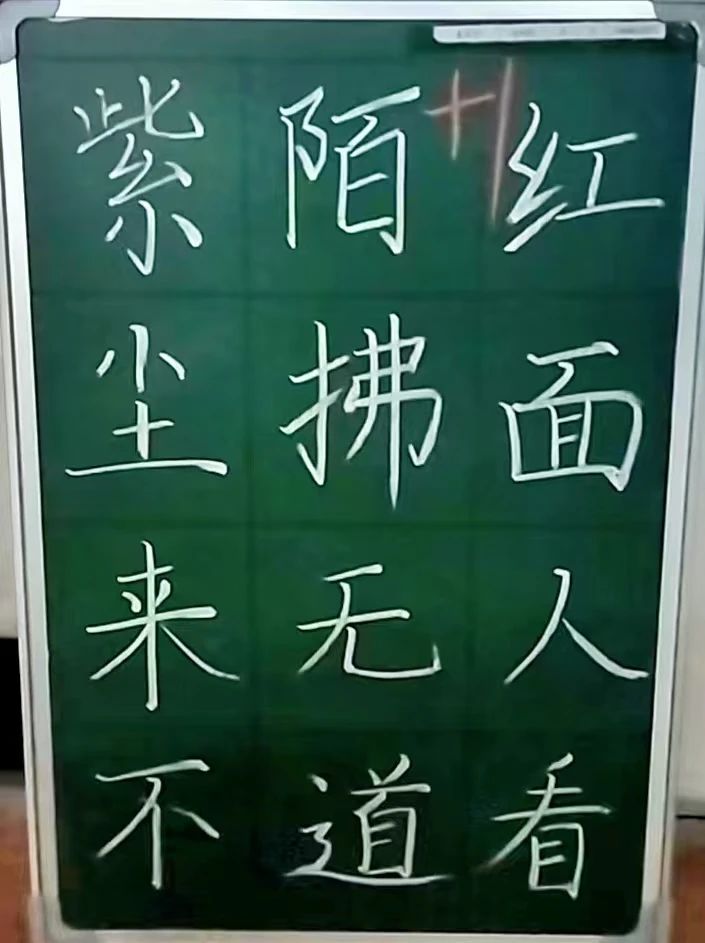 紫陌红
尘拂面
来无人
不道看